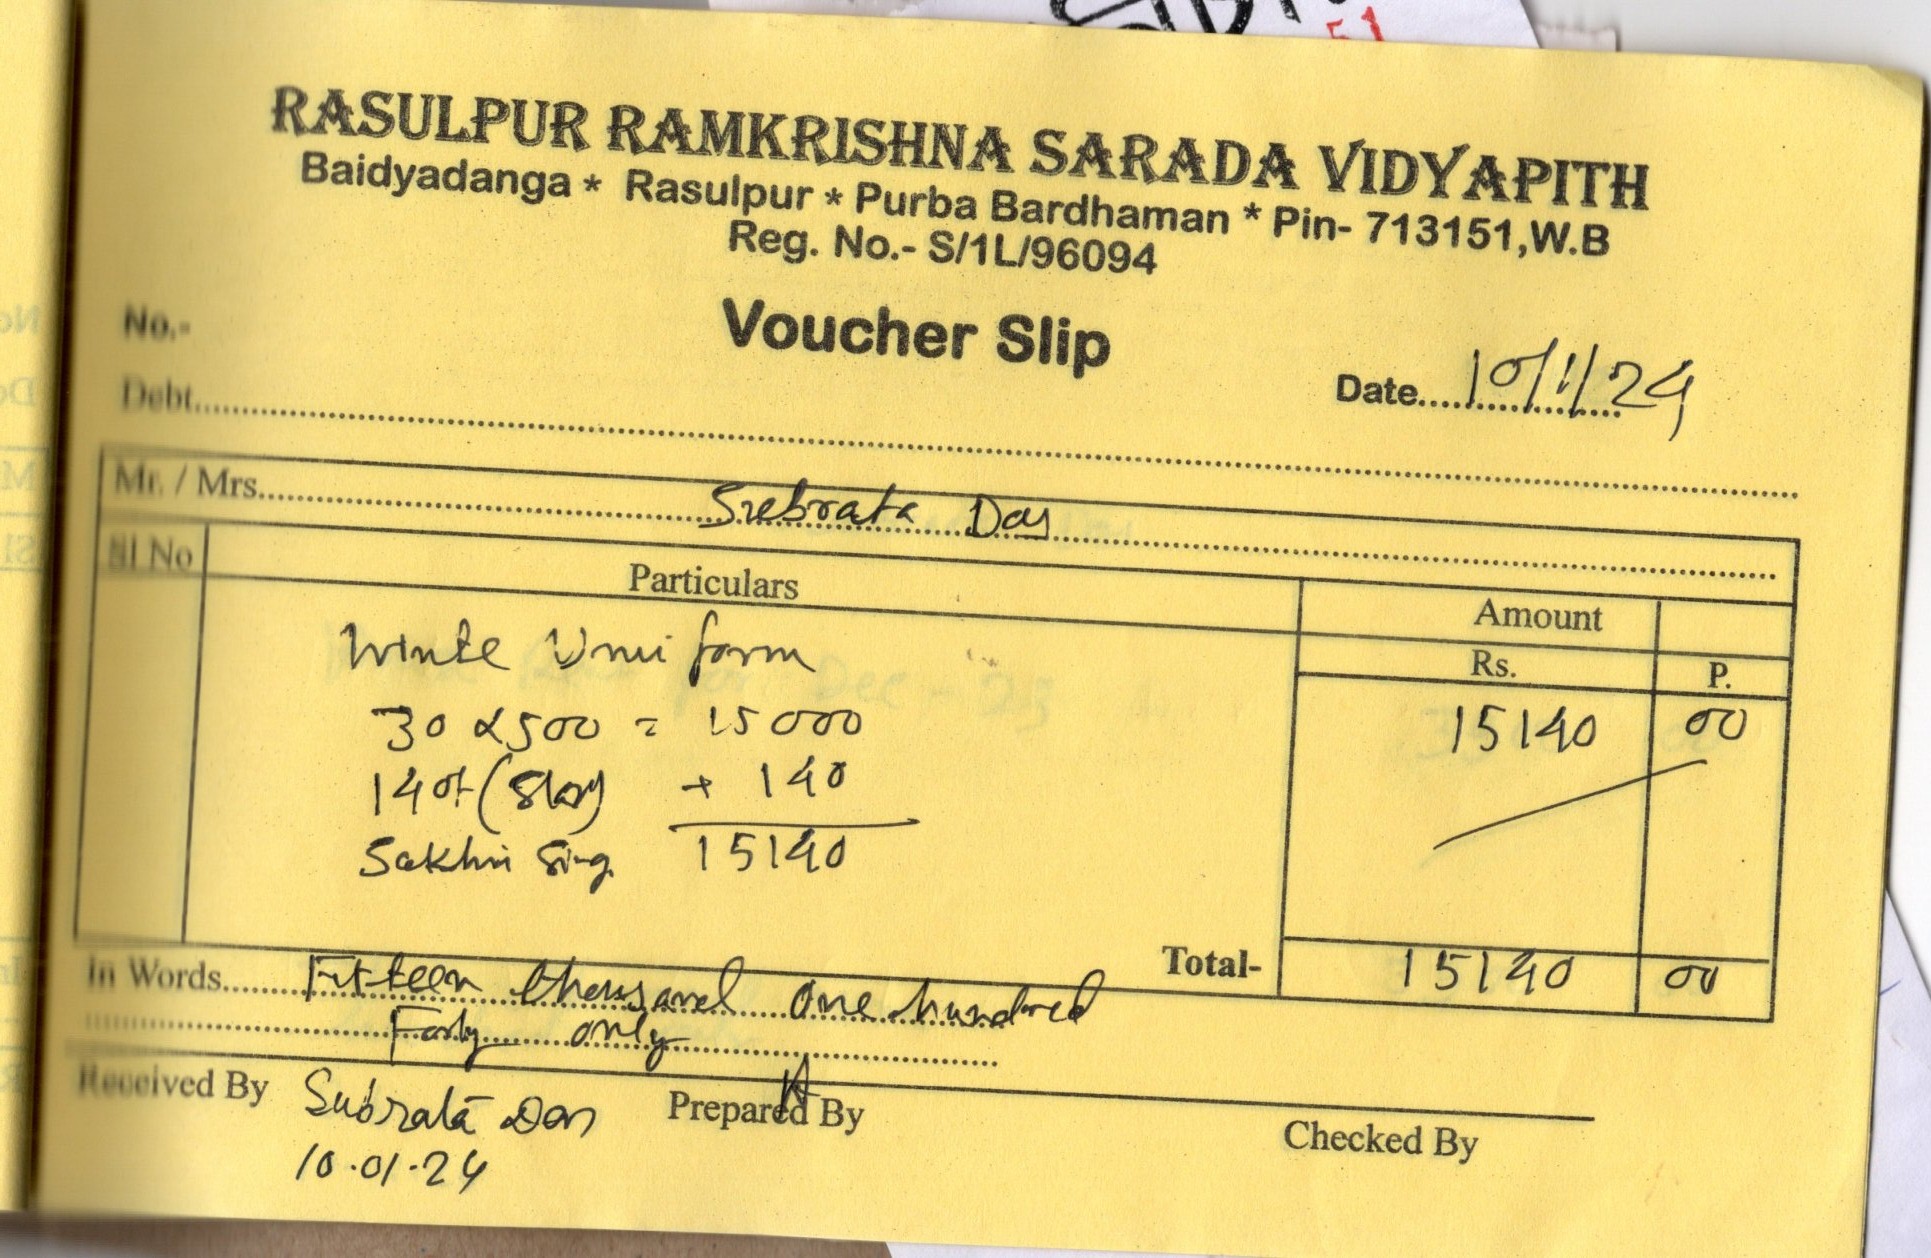 51
RASULPUR RAMKRISHNA SARADA VIDYAPITH
Baidyadanga * Rasulpur * Purba Bardhaman * Pin- 713151,W.B
Reg. No.- S/1L/96094
No.-
Voucher Slip
Date....10/1/24
Debt
Mr. / Mrs. Subrata Das
Sl No Particulars Amount
Rs. P.
Winte Uniform
30 x 500 = 15000 15140 00
140/- ( + 140
Sakhi 15140
Total- 15140 00
In Words Fifteen thousand one hundred
Forty only
Received By Subrata Das Prepared By Checked By
10.01.24